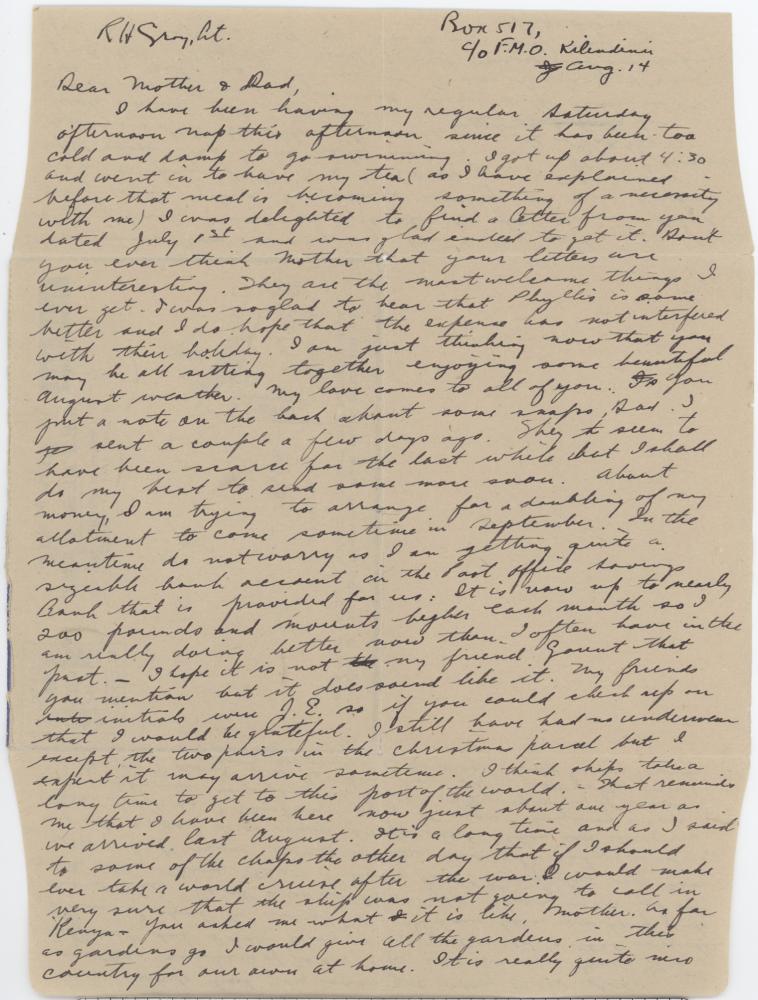 R H Gray, Lt.
Box 517,
c/o F.M.O. Kilindini
Aug. 14
Dear Mother & Dad,
I have been having my regular Saturday
afternoon nap this afternoon since it has been too
cold and damp to go swimming. I got up about 4:30
and went in to have my tea (as I have explained
before that meal is becoming something of a necessity
with me) I was delighted to find a letter from you
dated July 1st and was glad indeed to get it. Don't
you ever think Mother that your letters are
uninteresting. They are the most welcome things I
ever get. I was so glad to hear that Phyllis is some
better and I do hope that the expense has not interfered
with their holiday. I am just thinking now that you
may be all sitting together enjoying some beautiful
August weather. My love comes to all of you. You
put a note on the back about some snaps, Dad. I
sent a couple a few days ago. They seem to
have been scarce for the last while but I shall
do my best to send some more soon. About
money, I am trying to arrange for a doubling of my
allotment to come sometime in September. In the
meantime do not worry as I am getting quite a
sizeable bank account in the Post Office Savings
Bank that is provided for us: It is now up to nearly
200 pounds and mounts higher each month so I
am really doing better now than I often have in the
past. – I hope it is not my friend Gaunt that
you mention but it does sound like it. My friends
initials were J.E. so if you could check up on
that I would be grateful. I still have had no underwear
except the two pairs in the Christmas parcel but I
expect it may arrive sometime. I think ships take a
long time to get to this part of the world. – That reminds
me that I have been here now just about one year as
we arrived last August. It is a long time and as I said
to some of the chaps the other day that if I should
ever take a world cruise after the war I would make
very sure that the ship was not going to call in
Kenya – You asked me what it is like, Mother. As far
as gardens go I would give all the gardens in this
country for our own at home. It is really quite nice